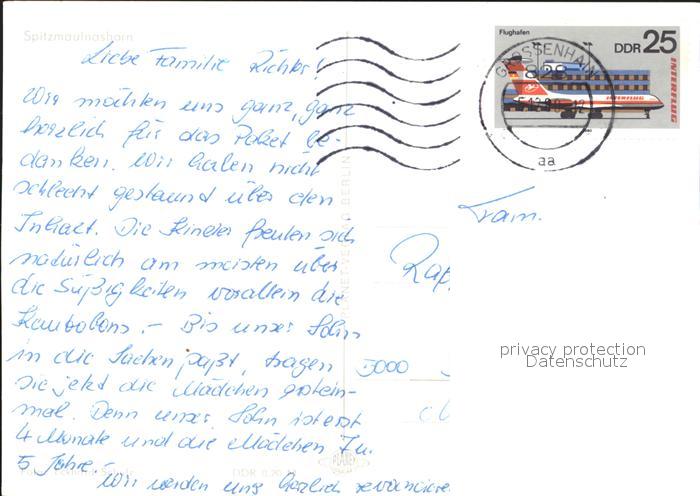 Spitzmaulnashorn
Liebe Familie Richter!
Wir möchten uns ganz, ganz
herzlich für das Paket be-
danken. Wir haben nicht
schlecht gestaunt über den
Inhalt. Die Kinder freuten sich
natürlich am meisten über
die Süßigkeiten vorallem die
Kaubobons. – Bis unser Sohn
in die Sachen paßt, tragen
sie jetzt die Mädchen erstein-
mal. Denn unser Sohn ist erst
4 Monate und die Mädchen 7 u.
5 Jahre. Wir werden uns herzlich revanchieren
DDR 0,20 M
PLANET-VERLAG BERLIN
Flughafen
DDR 25
INTERFLUG
INTERFLUG
GROSSENHAIN
828
aa
Fam.
3000
privacy protection
Datenschutz